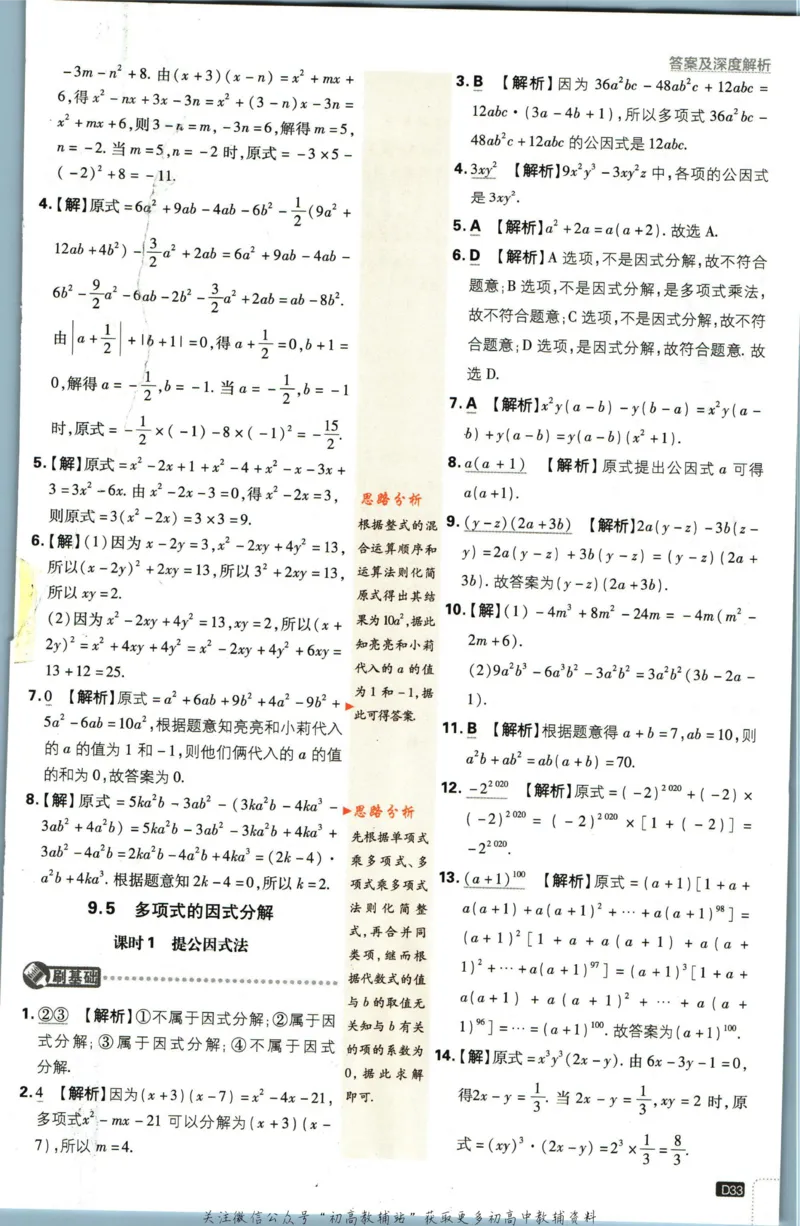 答案及深度解析
-3m-n²+8. 由(x+3)(x-n)=x²+mx+
6,得x²-nx+3x-3n=x²+(3-n)x-3n=
x²+mx+6,则3-n=m,-3n=6,解得m=5,
n=-2. 当m=5,n=-2时,原式=-3×5-
(-2)²+8=-11.
4.【解】原式=6a²+9ab-4ab-6b²-1/2(9a²+
12ab+4b²)-3/2a²+2ab=6a²+9ab-4ab-
6b²-9/2a²-6ab-2b²-3/2a²+2ab=ab-8b².
由|a+1/2|+|b+1|=0,得a+1/2=0,b+1=
0,解得a=-1/2,b=-1. 当a=-1/2,b=-1
时,原式=-1/2×(-1)-8×(-1)²=-15/2.
5.【解】原式=x²-2x+1+x²-4+x²-x-3x+
3=3x²-6x. 由x²-2x-3=0,得x²-2x=3,
则原式=3(x²-2x)=3×3=9.
6.【解】(1)因为x-2y=3,x²-2xy+4y²=13,
所以(x-2y)²+2xy=13,所以3²+2xy=13,
所以xy=2.
(2)因为x²-2xy+4y²=13,xy=2,所以(x+
2y)²=x²+4xy+4y²=x²-2xy+4y²+6xy=
13+12=25.
7.0 【解析】原式=a²+6ab+9b²+4a²-9b²+
5a²-6ab=10a²,根据题意知亮亮和小莉代入
的a的值为1和-1,则他们俩代入的a的值
的和为0,故答案为0.
8.【解】原式=5ka²b-3ab²-(3ka²b-4ka³-
3ab²+4a²b)=5ka²b-3ab²-3ka²b+4ka³+
3ab²-4a²b=2ka²b-4a²b+4ka³=(2k-4)·
a²b+4ka³. 根据题意知2k-4=0,所以k=2.
9.5 多项式的因式分解
课时1 提公因式法
刷基础
1.②③ 【解析】①不属于因式分解;②属于因
式分解;③属于因式分解;④不属于因式
分解.
2.4 【解析】因为(x+3)(x-7)=x²-4x-21,
多项式x²-mx-21可以分解为(x+3)(x-
7),所以m=4.
思路分析
根据整式的混
合运算顺序和
运算法则化简
原式得出其结
果为10a²,据此
知亮亮和小莉
代入的a的值
为1和-1,据
此可得答案.
思路分析
先根据单项式
乘多项式、多
项式乘多项式
法则化简整
式,再合并同
类项,继而根
据代数式的值
与b的取值无
关知与b有关
的项的系数为
0,据此求解
即可.
3.B 【解析】因为36a²bc-48ab²c+12abc=
12abc·(3a-4b+1),所以多项式36a²bc-
48ab²c+12abc的公因式是12abc.
4.3xy² 【解析】9x²y³-3xy²z中,各项的公因式
是3xy².
5.A 【解析】a²+2a=a(a+2). 故选A.
6.D 【解析】A选项,不是因式分解,故不符合
题意;B选项,不是因式分解,是多项式乘法,
故不符合题意;C选项,不是因式分解,故不符
合题意;D选项,是因式分解,故符合题意. 故
选D.
7.A 【解析】x²y(a-b)-y(b-a)=x²y(a-
b)+y(a-b)=y(a-b)(x²+1).
8.a(a+1) 【解析】原式提出公因式a可得
a(a+1).
9.(y-z)(2a+3b) 【解析】2a(y-z)-3b(z-
y)=2a(y-z)+3b(y-z)=(y-z)(2a+
3b). 故答案为(y-z)(2a+3b).
10.【解】(1)-4m³+8m²-24m=-4m(m²-
2m+6).
(2)9a²b³-6a³b²-3a²b²=3a²b²(3b-2a-
1).
11.B 【解析】根据题意得a+b=7,ab=10,则
a²b+ab²=ab(a+b)=70.
12.-2²⁰²⁰ 【解析】原式=(-2)²⁰²⁰+(-2)×
(-2)²⁰²⁰=(-2)²⁰²⁰×[1+(-2)]=
-2²⁰²⁰.
13.(a+1)¹⁰⁰ 【解析】原式=(a+1)[1+a+
a(a+1)+a(a+1)²+…+a(a+1)⁹⁸]=
(a+1)²[1+a+a(a+1)+a(a+
1)²+…+a(a+1)⁹⁷]=(a+1)³[1+a+
a(a+1)+a(a+1)²+…+a(a+
1)⁹⁶]=…=(a+1)¹⁰⁰. 故答案为(a+1)¹⁰⁰.
14.【解】原式=x³y³(2x-y). 由6x-3y-1=0,
得2x-y=1/3. 当2x-y=1/3,xy=2时,原
式=(xy)³·(2x-y)=2³×1/3=8/3.
D33
关注微信公众号“初高教辅站”获取更多初高中教辅资料